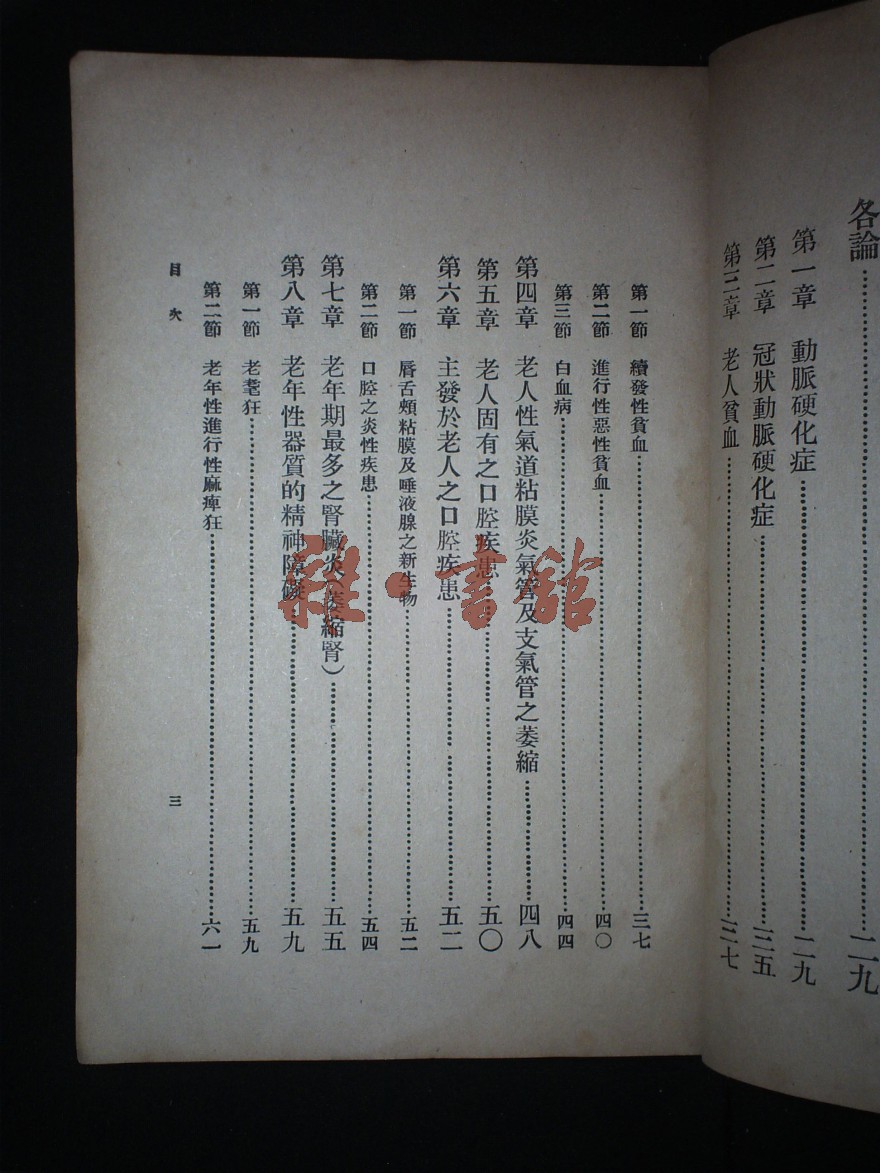 各論……二九
第一章　動脈硬化症……二九
第二章　冠狀動脈硬化症……三五
第三章　老人貧血……三七
第一節　續發性貧血……三七
第二節　進行性惡性貧血……四〇
第三節　白血病……四四
第四章　老人性氣道粘膜炎氣管及支氣管之萎縮……四八
第五章　老人固有之口腔疾患……五〇
第六章　主發於老人之口腔疾患……五二
第一節　唇舌頰粘膜及唾液腺之新生物……五二
第二節　口腔之炎性疾患……五四
第七章　老年期最多之腎臟炎（萎縮腎）……五五
第八章　老年性器質的精神障礙……五九
第一節　老耄狂……五九
第二節　老年性進行性麻痺狂……六一
目次　三
雜·書館